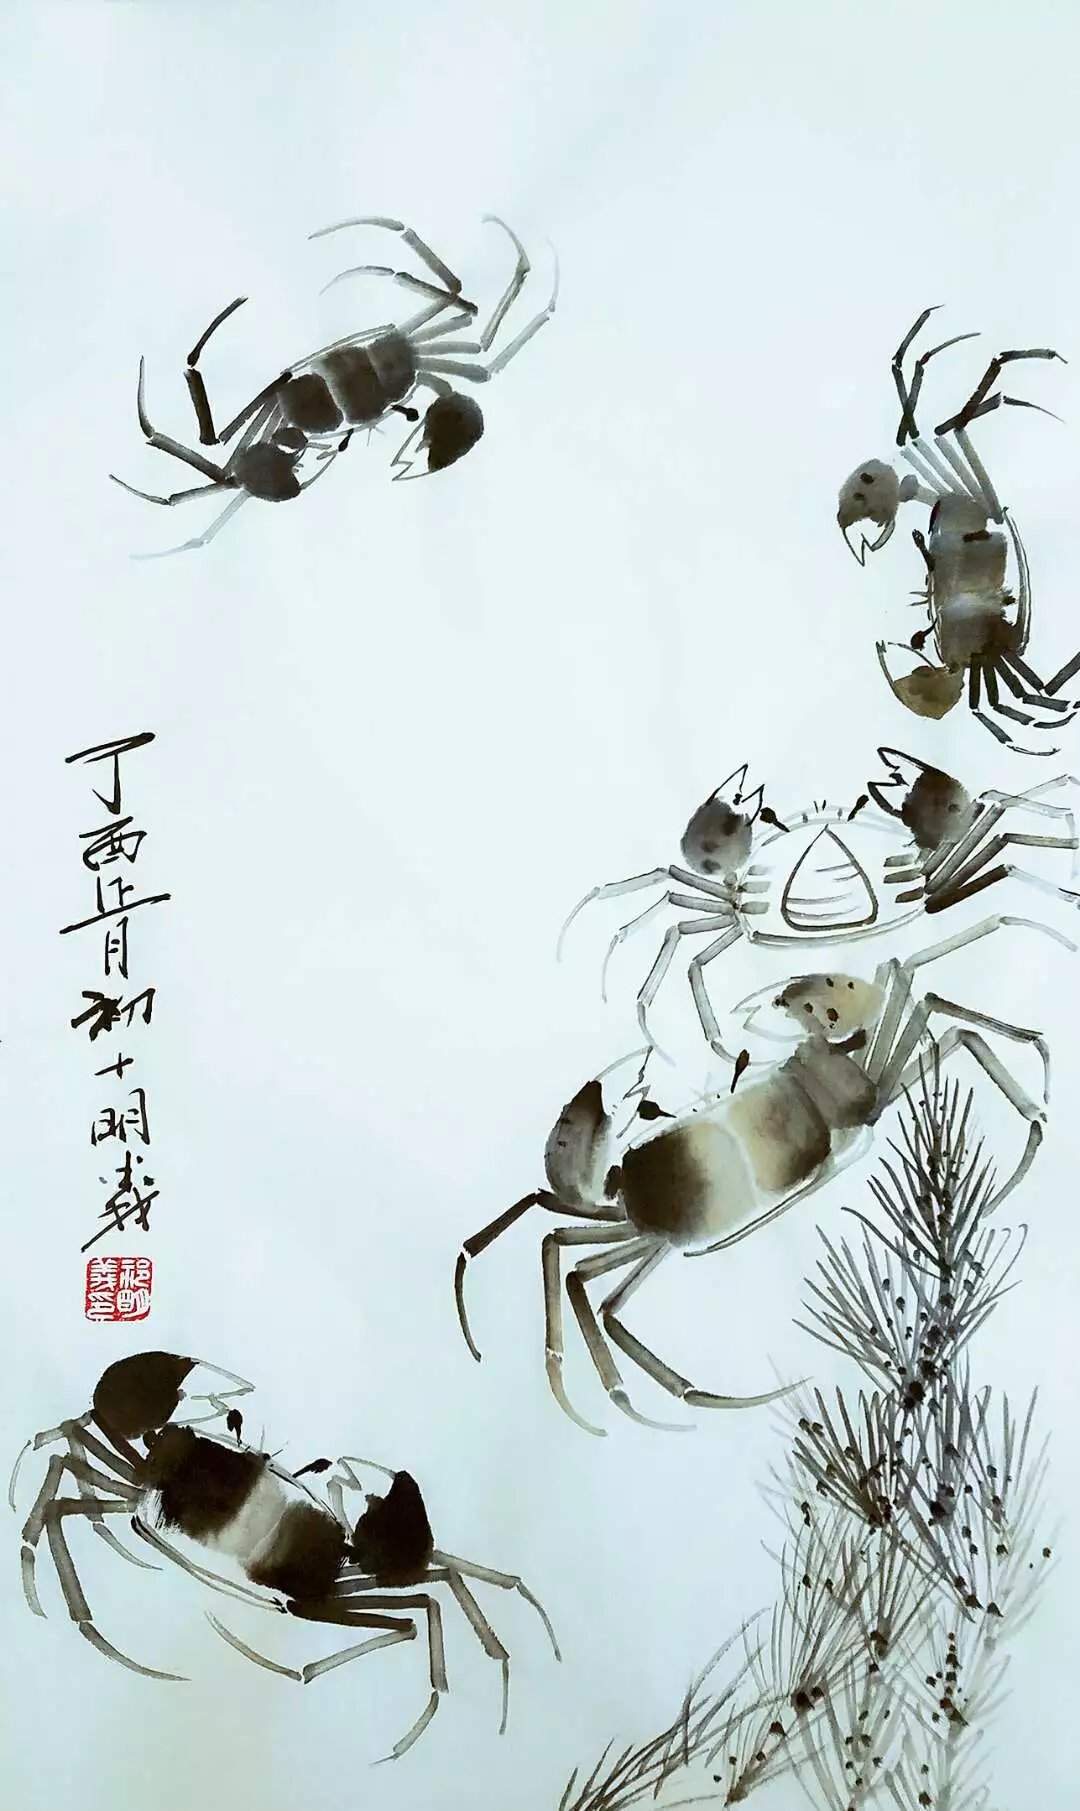 丁酉正月初十明義
祁明義印